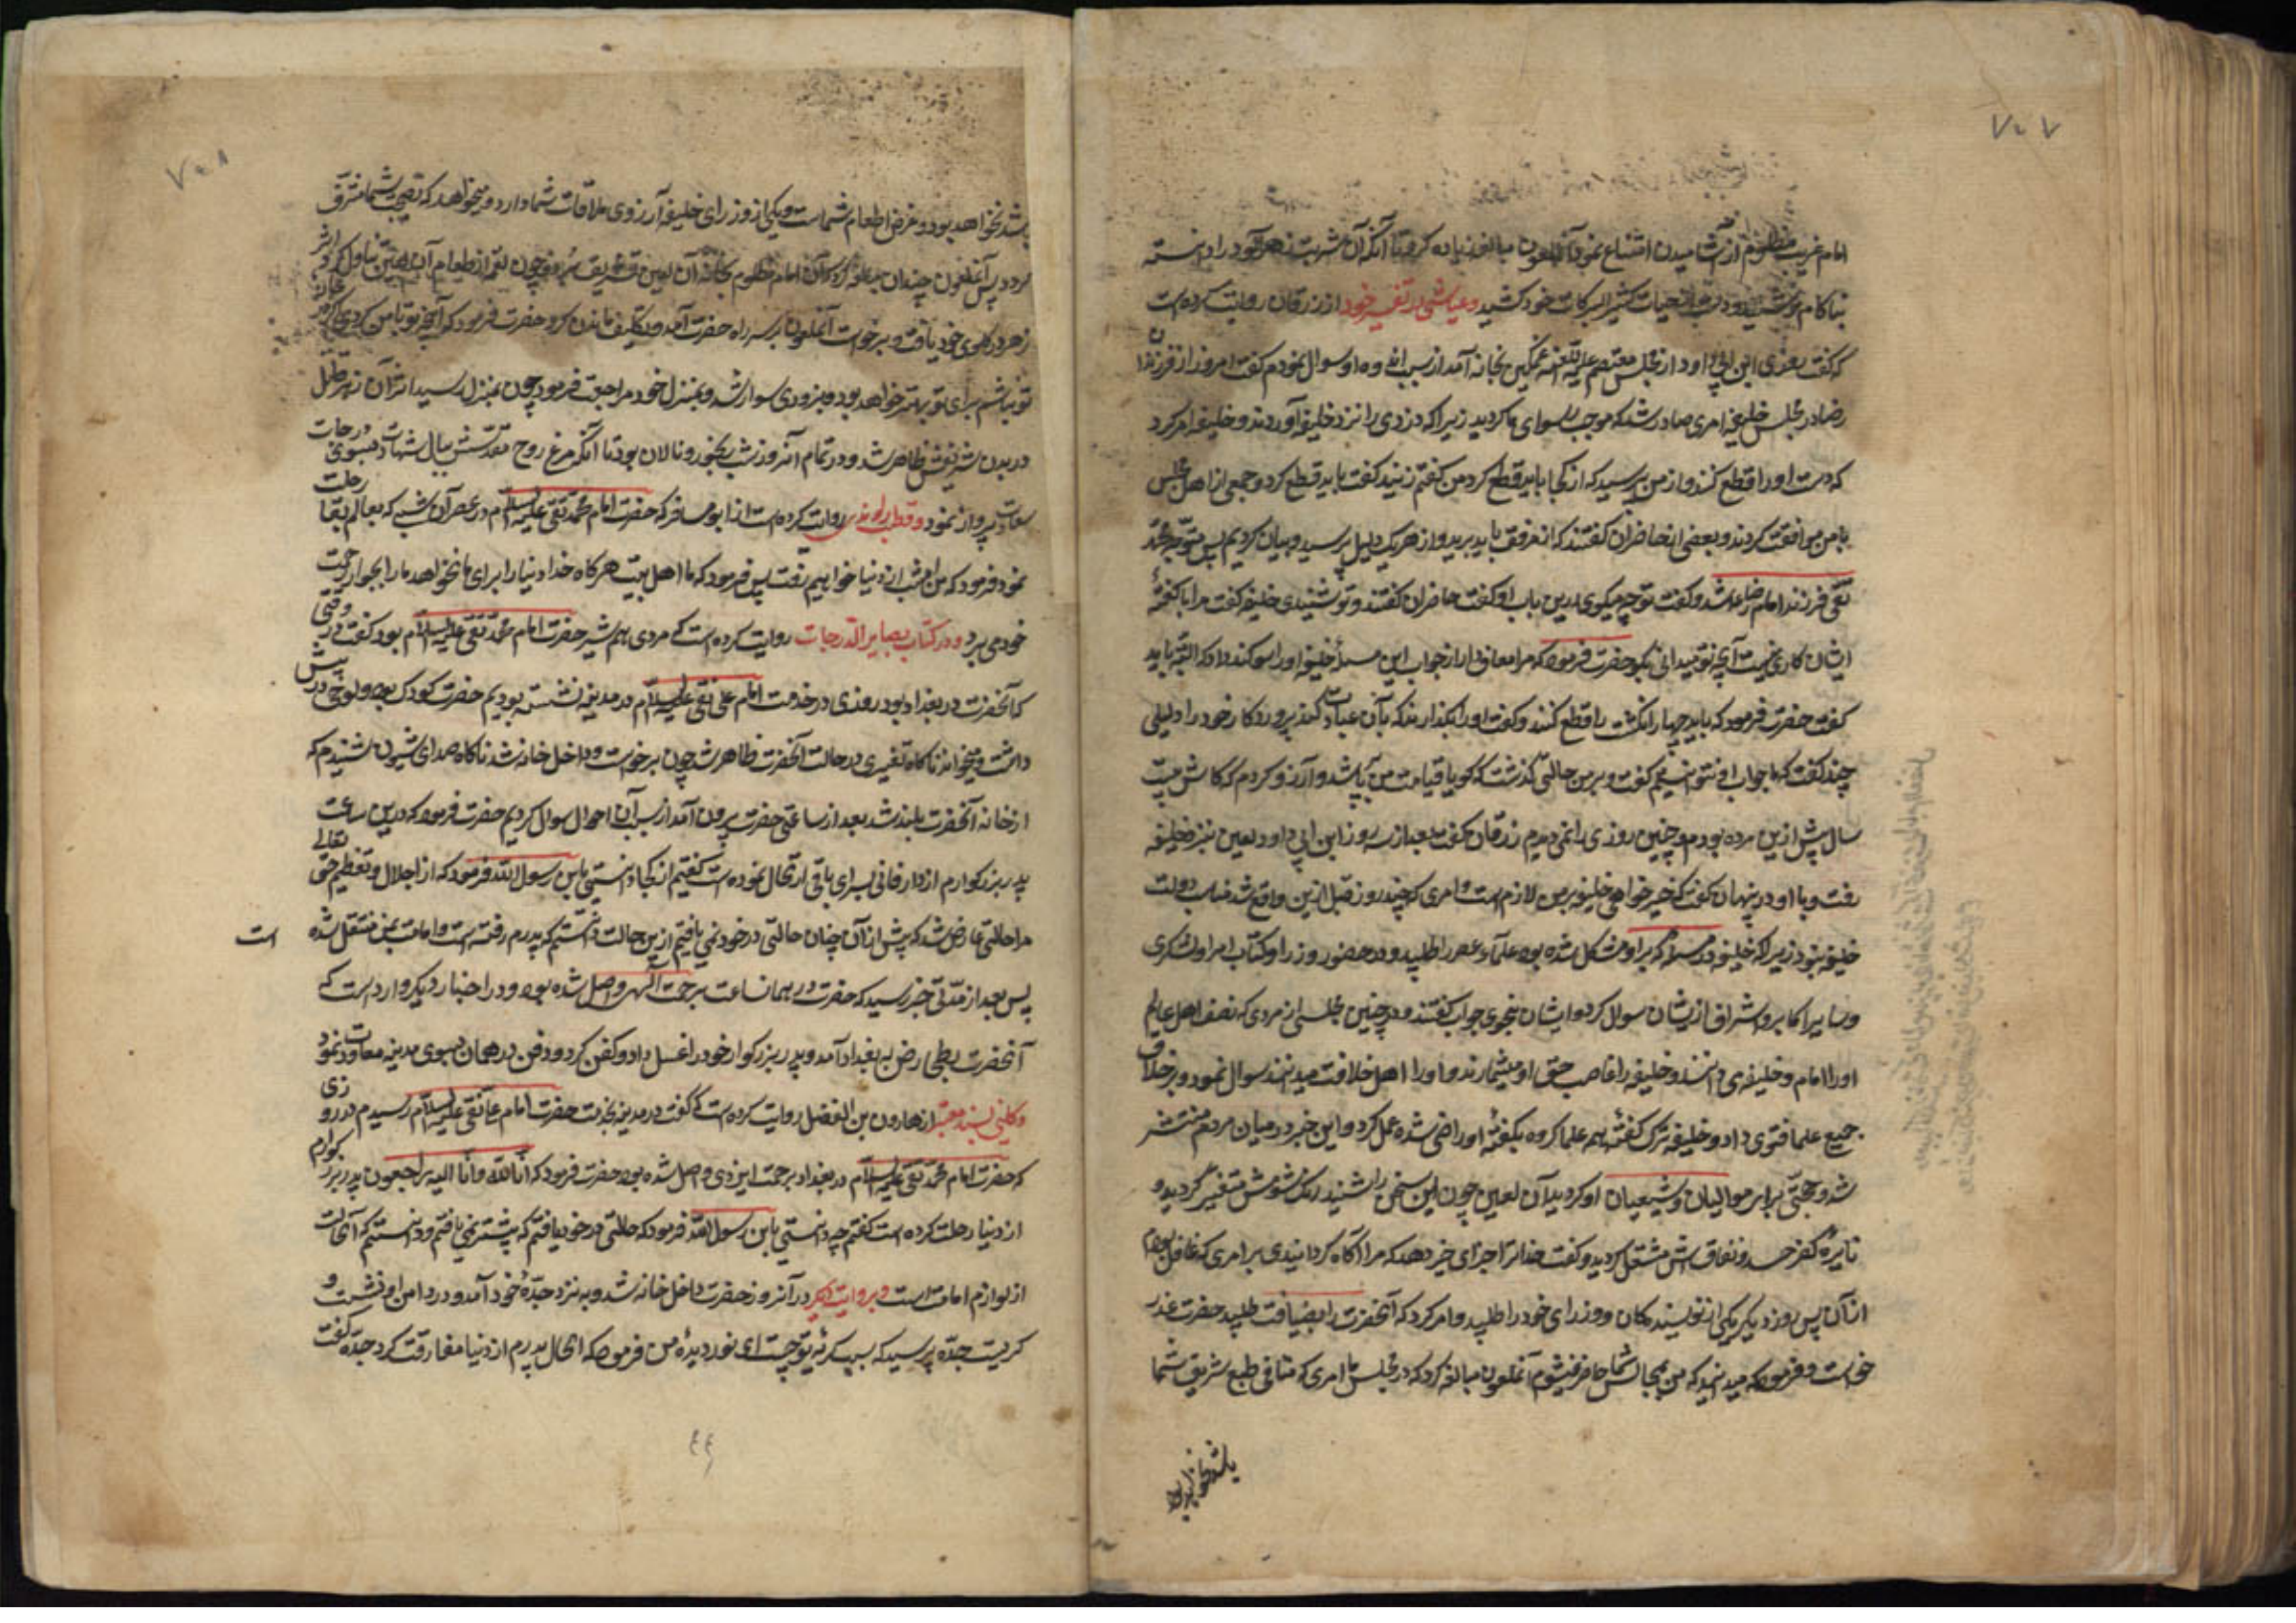 ۷۰۷
امام غریب مظلوم از آشامیدن امتناع نمود آن ملعون مبالغه زیاده کرد تا آنکه آن شربت زهرآلود را دانسته
بناکام نوشید و دست از حیات کثیر البرکات خود کشید و عیاشی در تفسیر خود از زرقان روایت کرده است
که گفت روزی ابن ابی داود از مجلس معتصم علیه اللعنه غمگین بخانه آمد از سبب اندوه او سوال نمودم گفت امروز از فرزندان
رضا در مجلس خلیفه امری صادر شد که موجب رسوای ما گردید زیرا که دزدی را نزد خلیفه آوردند و خلیفه امر کرد
که دست او را قطع کنند و از من پرسید که از کجا باید قطع کرد من گفتم زنید گفت باید قطع کرد و جمعی از اهل مجلس
با من موافقت کردند و بعضی از حاضران گفتند که از مرفق باید برید و از هر یک دلیل پرسید و بیان کردیم پس متوجه محمد
تقی فرزند امام رضا شد و گفت تو چه میکوی درین باب او گفت حاضران گفتند و تو شنیدی خلیفه گفت مرا با گفته
ایشان کاری نیست آنچه تو میدانی بگو حضرت فرمود که مرا معاف دار از جواب این مسأله خلیفه او را سوکند داد که البته باید
گفت حضرت فرمود که باید چهار انگشت را قطع کنند و کف او را بگذارند که بآن عبادت کند پروردکار خود را و دلیلی
چند گفت که ما جواب او نتوانستیم گفت و بر من حالتی گذشت که گویا قیامت من بر پا شد و آرزو کردم که کاش بیست
سال پیش ازین مرده بودم و چنین روزی را نمی‌دیدم زرقان گفت بعد از سه روز ابن ابی داود لعین نزد خلیفه
رفت و با او در پنهان گفت که خیر خواهی خلیفه بر من لازم است و امری که چند روز قبل ازین واقع شد مناسب دولت
خلیفه نبود زیرا که خلیفه در مسأله که بر او مشکل شده بود علماء عصر را طلبید و در حضور وزرا و کتاب و امرا و لشکری
و سایر اکابر و اشراف ازیشان سوال کرد و ایشان بنحوی جواب گفتند و در چنین مجلسی از مردی که نصف اهل عالم
او را امام و خلیفه می دانند و خلیفه را غاصب حق او میشمارند و او را اهل خلافت میدانند سوال نمود و بر خلاف
جمیع علما فتوی داد و خلیفه ترک گفته همه علما کرده بگفته او راضی شده عمل کرد و این خبر در میان مردم منتشر
شد و حجتی برای موالیان و شیعیان او گردید آن لعین چون این سخن را شنید رنگ شومش متغیر گردید و
نایره کفر و حسد و نفاقش مشتعل گردید و گفت خدا ترا جزای خیر دهد که مرا آگاه گردانیدی بر امری که غافل بودم
از آن پس روز دیگر یکی از نویسندگان و وزرای خود را طلبید و امر کرد که آنحضرت را بضیافت طلبید حضرت عذر
خواست و فرمود که میدانید که من بمجالس شما حاضر نمیشوم آن ملعون مبالغه کرد که در مجلس ما امری که منافی طبع شریف شما
باشد نخواهد بود
۷۰۸
باشد نخواهد بود و غرض اطعام شماست و یکی از وزرای خلیفه آرزوی ملاقات شما دارد و میخواهد که بصحبت شما مشرف
گردد پس آن ملعون چندان مبالغه کرد که آن امام مظلوم بخانه آن لعین تشریف برد و چون لقمه از طعام آن لعین تناول کرد اثر
زهر در گلوی خود یافت و برخواست آن ملعون بر سر راه حضرت آمد و تکلیف ماندن کرد حضرت فرمود که آنچه تو با من کردی اگر در خانه
تو نباشم برای تو بهتر خواهد بود و بزودی سوار شد و بمنزل خود مراجعت فرمود چون بمنزل رسید اثر آن زهر قاتل
در بدن شریفش ظاهر شد و در تمام آنروز و شب رنجور و نالان بود تا آنکه مرغ روح مقدسش ببال شهادت بسوی درجات
سعادت پرواز نمود و قطب راوندی روایت کرده است از ابو مسافر که حضرت امام محمد تقی علیه السلام در عصر آن شبی که بعالم بقا رحلت
نمود فرمود که من امشب از دنیا خواهیم رفت پس فرمود که ما اهل بیت هرگاه خدا دنیا را برای ما نخواهد ما را بجوار رحمت
خود می برد و در کتاب بصایر الدرجات روایت کرده است که مردی همشیر حضرت امام محمد تقی علیه السلام بود گفت در وقتی
که آنحضرت در بغداد بود روزی در خدمت امام علی نقی علیه السلام در مدینه نشسته بودیم حضرت کودک بود و لوحی در پیش
داشت و میخواند ناکاه تغییری در حالت آنحضرت ظاهر شد چون برخواست و داخل خانه شد ناکاه صدای شیون شنیدم که
از خانه آنحضرت بلند شد بعد از ساعتی حضرت بیرون آمد از سبب آن احوال سوال کردیم حضرت فرمود که درین ساعت
پدر بزرگوارم از دار فانی بسرای باقی ارتحال نموده است گفتیم از کجا دانستی یابن رسول الله فرمود که از اجلال و تعظیم حق تعالی
مرا حالتی عارض شد که پیش از آن چنان حالتی در خود نمی یافتم ازین حالت دانستم که پدرم رفته است و امامت بمن منتقل شده است
پس بعد از مدتی خبر رسید که حضرت در همان ساعت برحمت الهی واصل شده بود و در اخبار دیگر وارد است که
آنحضرت بطی ارض به بغداد آمد و پدر بزرگوار خود را غسل داد و کفن کرد و دفن در همان بسوی مدینه معاودت نمود
و کلینی بسند معتبر از هارون بن الفضل روایت کرده است که گفت در مدینه بخدمت حضرت امام علی نقی علیه السلام رسیدم در روزی
که حضرت امام محمد تقی علیه السلام در بغداد برحمت ایزدی واصل شده بود حضرت فرمود که انا لله وانا الیه راجعون پدر بزرگوارم
از دنیا رحلت کرده است گفتم چه دانستی یابن رسول الله فرمود که حالتی در خود یافتم که پیشتر نمی یافتم و دانستم که آن حالت
از لوازم امامت است و بروایت دیگر در آنروز حضرت داخل خانه شد و به نزد جده خود آمد و در دامن او نشست و
گریست جده پرسید که سبب گریه تو چیست ای نور دیده من فرمود که الحال پدرم از دنیا مفارقت کرد جده گفت